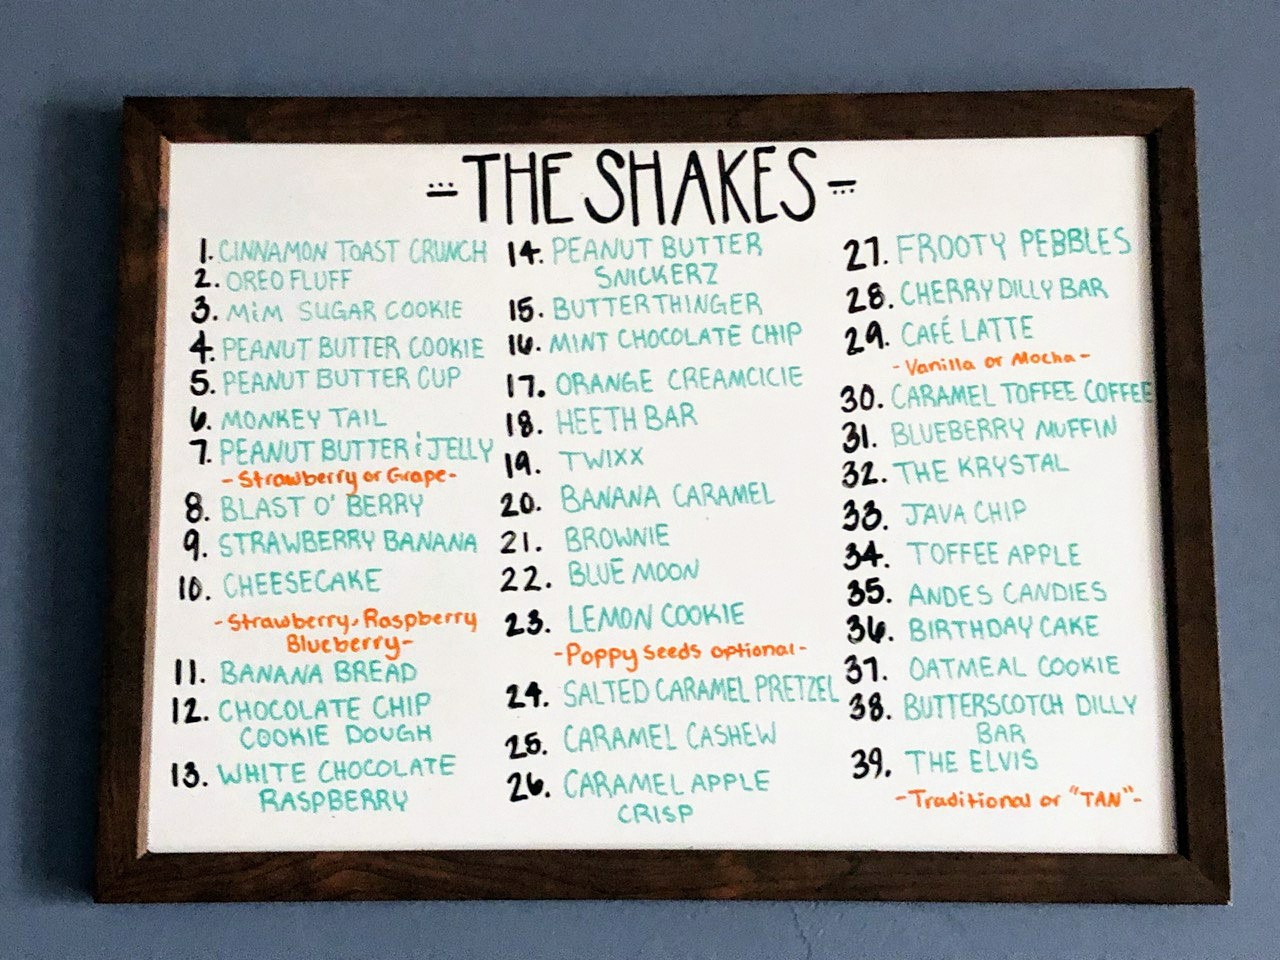 THE SHAKES
1. CINNAMON TOAST CRUNCH
2. OREO FLUFF
3. MiM SUGAR COOKIE
4. PEANUT BUTTER COOKIE
5. PEANUT BUTTER CUP
6. MONKEY TAIL
7. PEANUT BUTTER & JELLY
-Strawberry or Grape-
8. BLAST O' BERRY
9. STRAWBERRY BANANA
10. CHEESECAKE
-Strawberry, Raspberry
Blueberry-
11. BANANA BREAD
12. CHOCOLATE CHIP
COOKIE DOUGH
13. WHITE CHOCOLATE
RASPBERRY
14. PEANUT BUTTER
SNICKERZ
15. BUTTERTHINGER
16. MINT CHOCOLATE CHIP
17. ORANGE CREAMCICIE
18. HEETH BAR
19. TWIXX
20. BANANA CARAMEL
21. BROWNIE
22. BLUE MOON
23. LEMON COOKIE
-Poppy Seeds optional-
24. SALTED CARAMEL PRETZEL
25. CARAMEL CASHEW
26. CARAMEL APPLE
CRISP
27. FROOTY PEBBLES
28. CHERRY DILLY BAR
29. CAFÉ LATTE
-Vanilla or Mocha-
30. CARAMEL TOFFEE COFFEE
31. BLUEBERRY MUFFIN
32. THE KRYSTAL
33. JAVA CHIP
34. TOFFEE APPLE
35. ANDES CANDIES
36. BIRTHDAY CAKE
37. OATMEAL COOKIE
38. BUTTERSCOTCH DILLY
BAR
39. THE ELVIS
-Traditional or "TAN"-